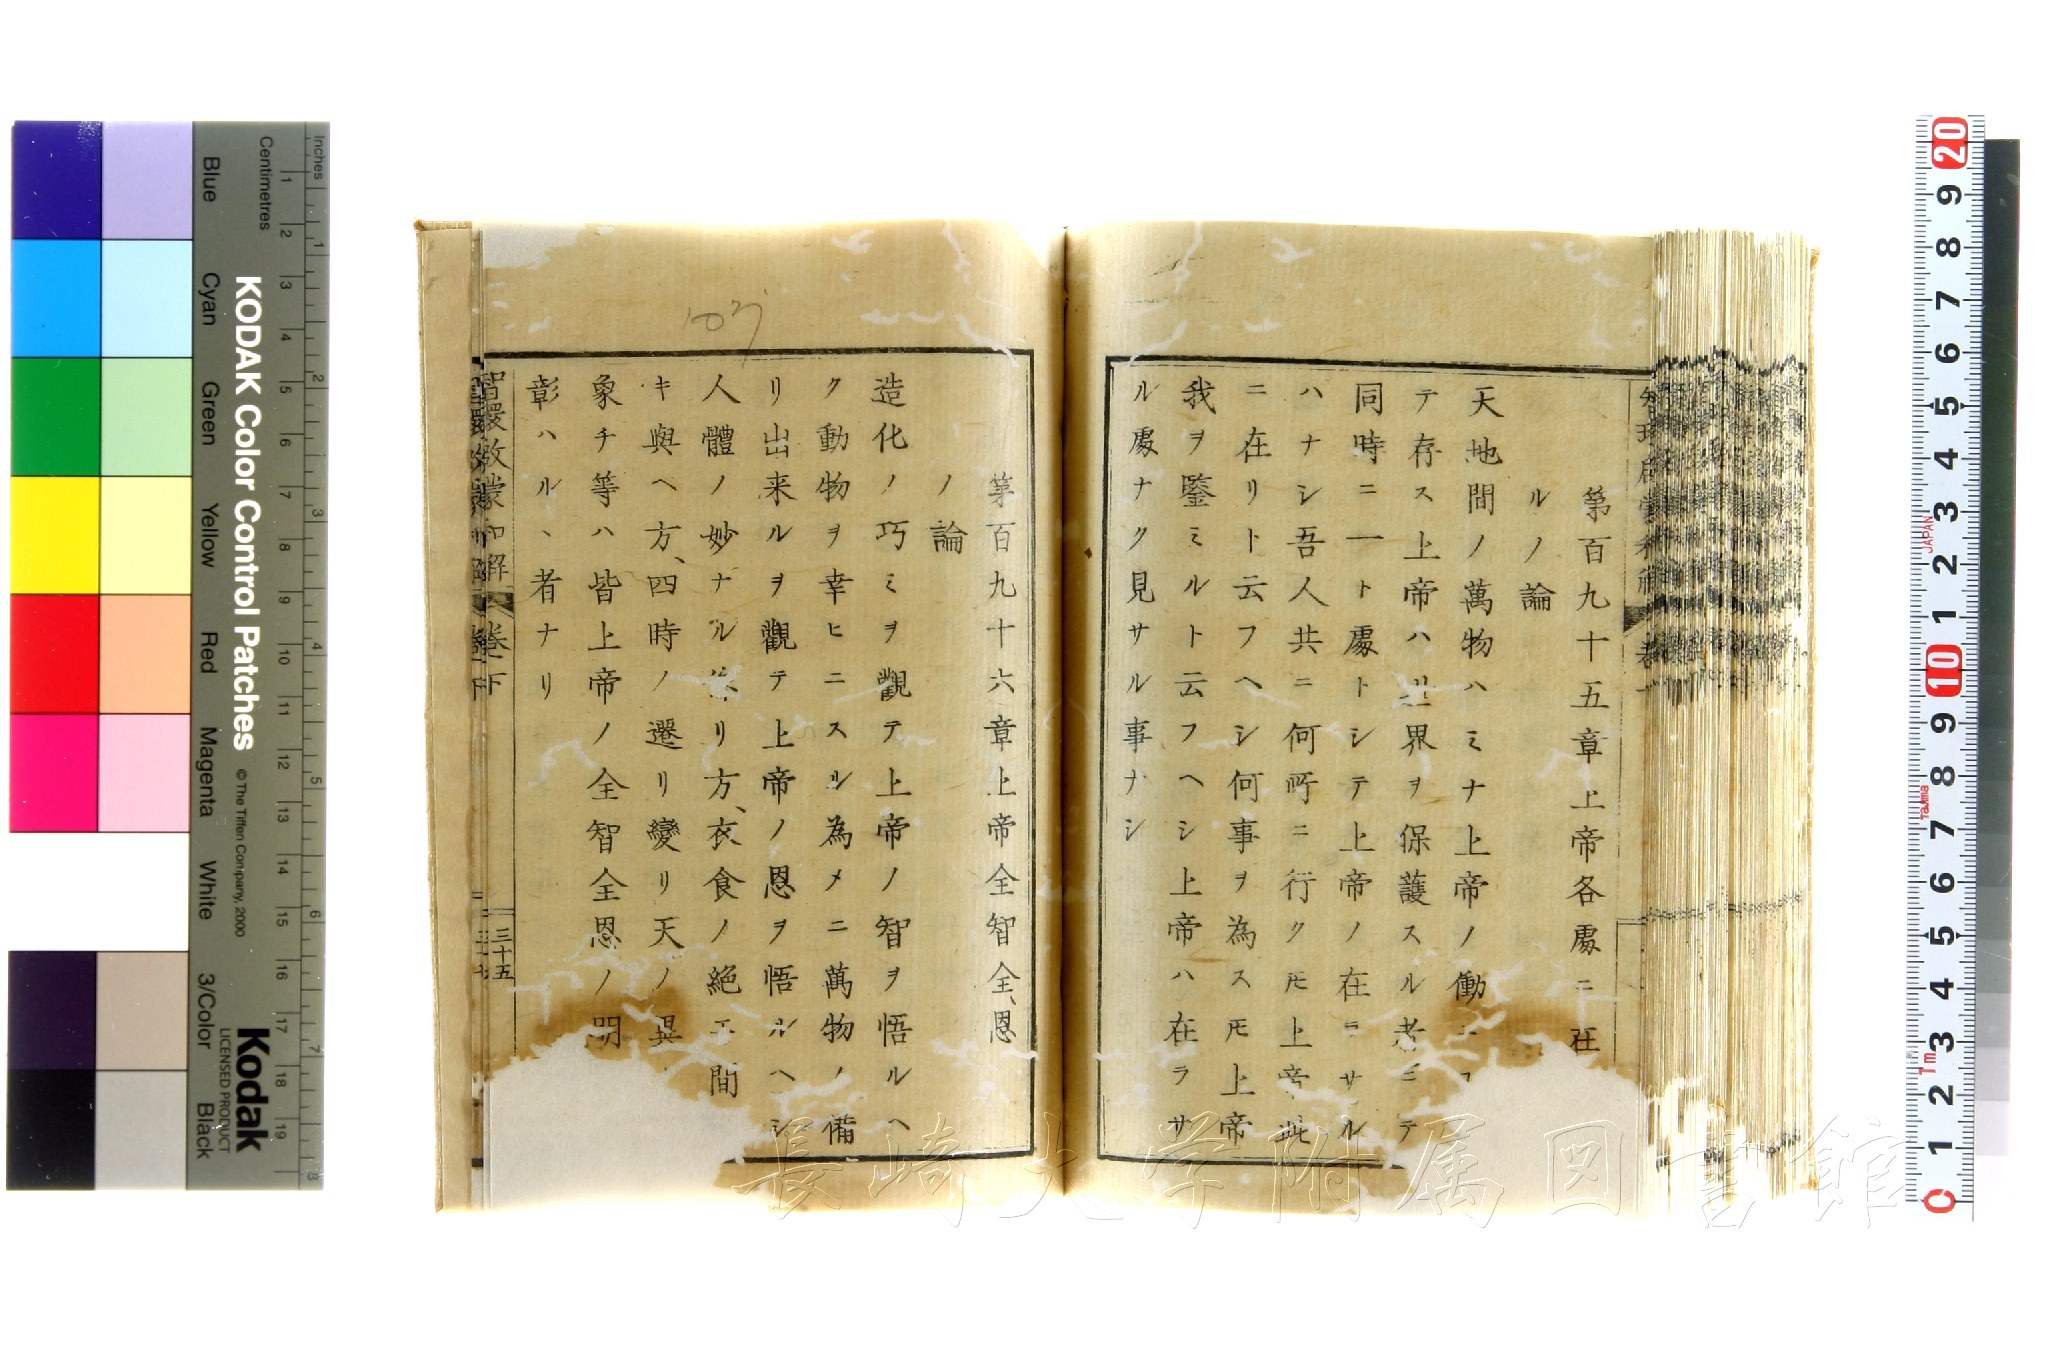 第百九十五章上帝各處ニ在
ルノ論
天地間ノ萬物ハミナ上帝ノ働
テ存ス上帝ハ世界ヲ保護スル者ニテ
同時ニ一ト處トシテ上帝ノ在ラサル
ハナシ吾人共ニ何所ニ行クモ上帝此
ニ在リト云フヘシ何事ヲ為スモ上帝
我ヲ鑒ミルト云フヘシ上帝ハ在ラサ
ル處ナク見サル事ナシ
第百九十六章上帝全智全恩
ノ論
造化ノ巧ミヲ觀テ上帝ノ智ヲ悟ルヘ
ク動物ヲ幸ヒニスル為メニ萬物ノ備
リ出来ルヲ觀テ上帝ノ恩ヲ悟ルヘシ
人體ノ妙ナル リ方、衣食ノ絶エ間
キ與ヘ方、四時ノ遷リ變リ天ノ異
象チ等ハ皆上帝ノ全智全恩ノ明
彰ハルヽ者ナリ
智環啟蒙和解
卷下
三十五
長崎大学附属図書館
KODAK Color Control Patches
© The Tiffen Company, 2000
Kodak
LICENSED PRODUCT
Inches
Centimetres
1 2 3 4 5 6 7 8 9 10 11 12 13 14 15 16 17 18 19
1 2 3 4 5 6 7 8
Blue
Cyan
Green
Yellow
Red
Magenta
White
3/Color
Black
20 9 8 7 6 5 4 3 2 1 10 9 8 7 6 5 4 3 2 1 0
JAPAN
Tajima
1m